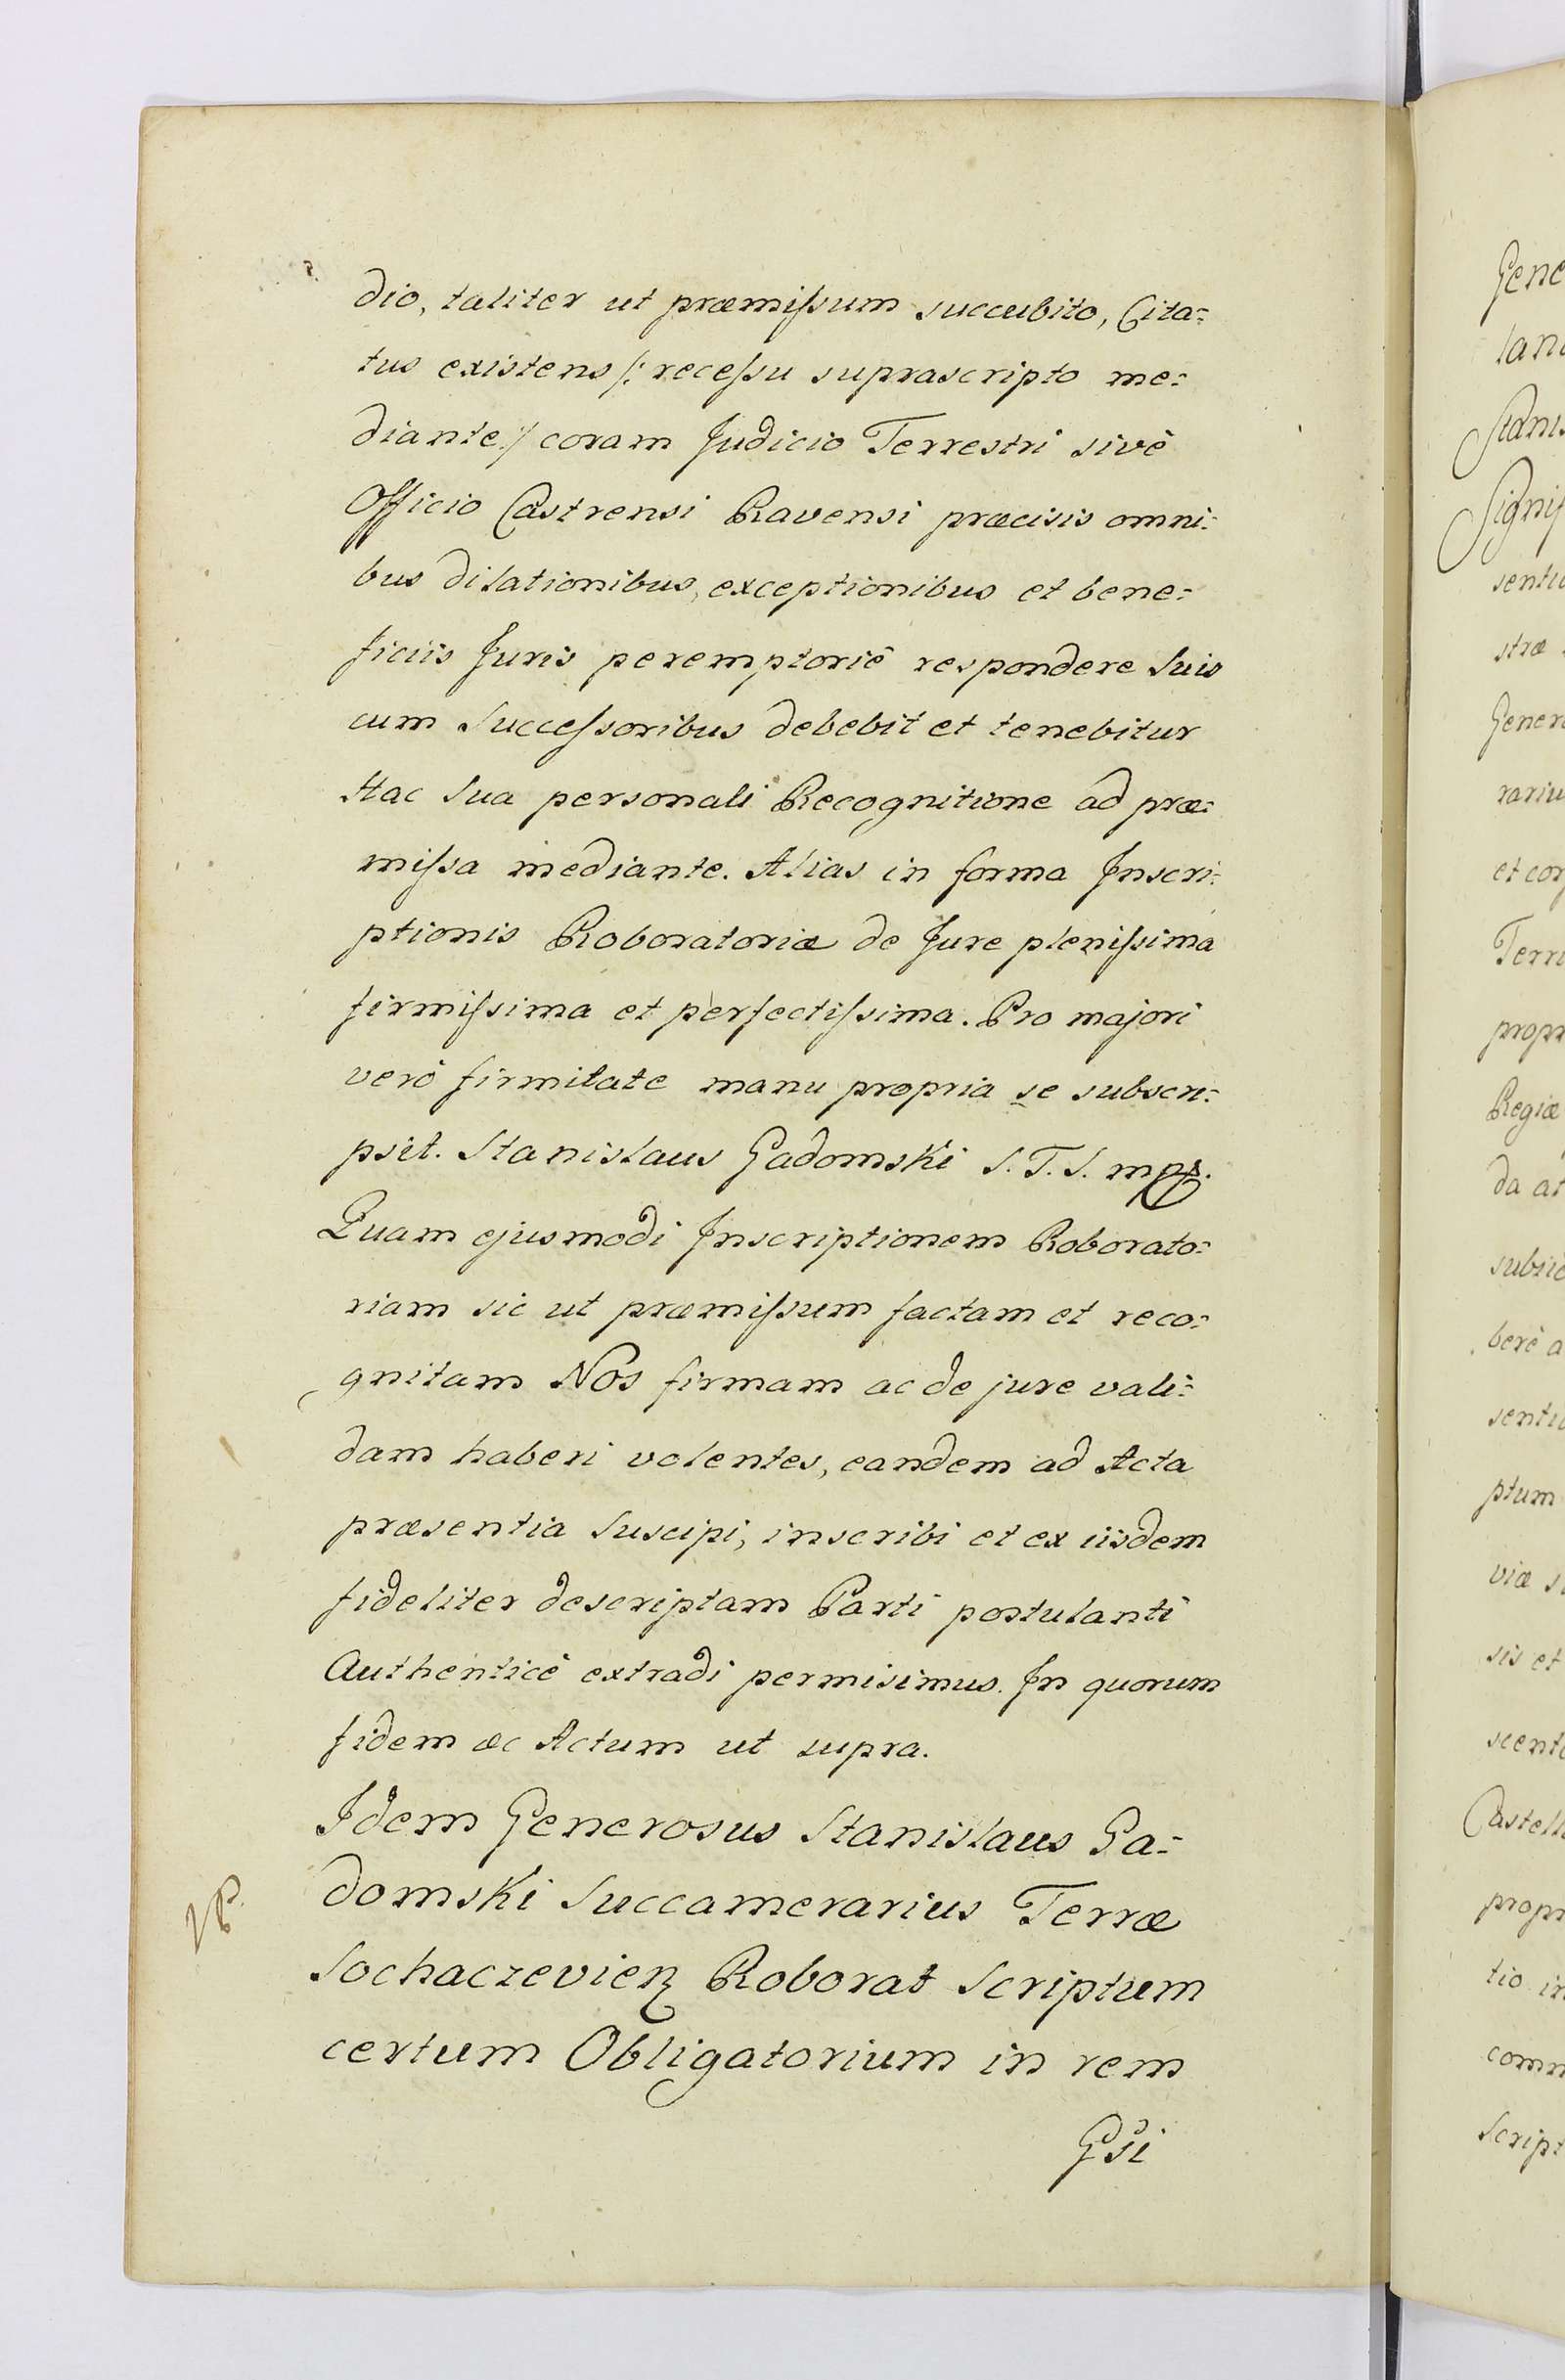 dio, taliter ut præmiſsum succubito, Cita=
tus existens /: recessu suprascripto me=
diante :/ coram Judicio Terrestri sivè
Officio Castrensi Ravensi præcisis omni=
bus dilationibus, exceptionibus et bene=
ficiis Juris peremptoriè respondere Suis
cum Succeſsoribus debebit et tenebitur
Hac Sua personali Recognitione ad præ=
miſsa mediante. Alias in forma Inscri=
ptionis Roboratoriæ de Jure pleniſsima
firmiſsima et perfectiſsima. Pro majori
verò firmitate manu propria se subscri=
psit. Stanislaus Gadomski S. T. S. mpr.
Quam ejusmodi Inscriptionem Roborato=
riam sic ut præmiſsum factam et reco=
gnitam Nos firmam ac de jure vali=
dam haberi volentes, eandem ad Acta
præsentia Suscipi, inscribi et ex iisdem
fideliter descriptam Parti postulanti
Authenticè extradi permisimus. In quorum
fidem ac Actum ut supra.
Idem Generosus Stanislaus Ga=
domski Succamerarius Terræ
Sochaczevien Roborat Scriptum
certum Obligatorium in rem
Gsi
Gene
Stanis
Signif
sentia
stræ
Gener
rariu
et cor
Terr
propr
Regiæ
da at
subiic
berè a
sentia
ptum
viæ s
sis et
scent
Castell
propr
tio in
comm
Script